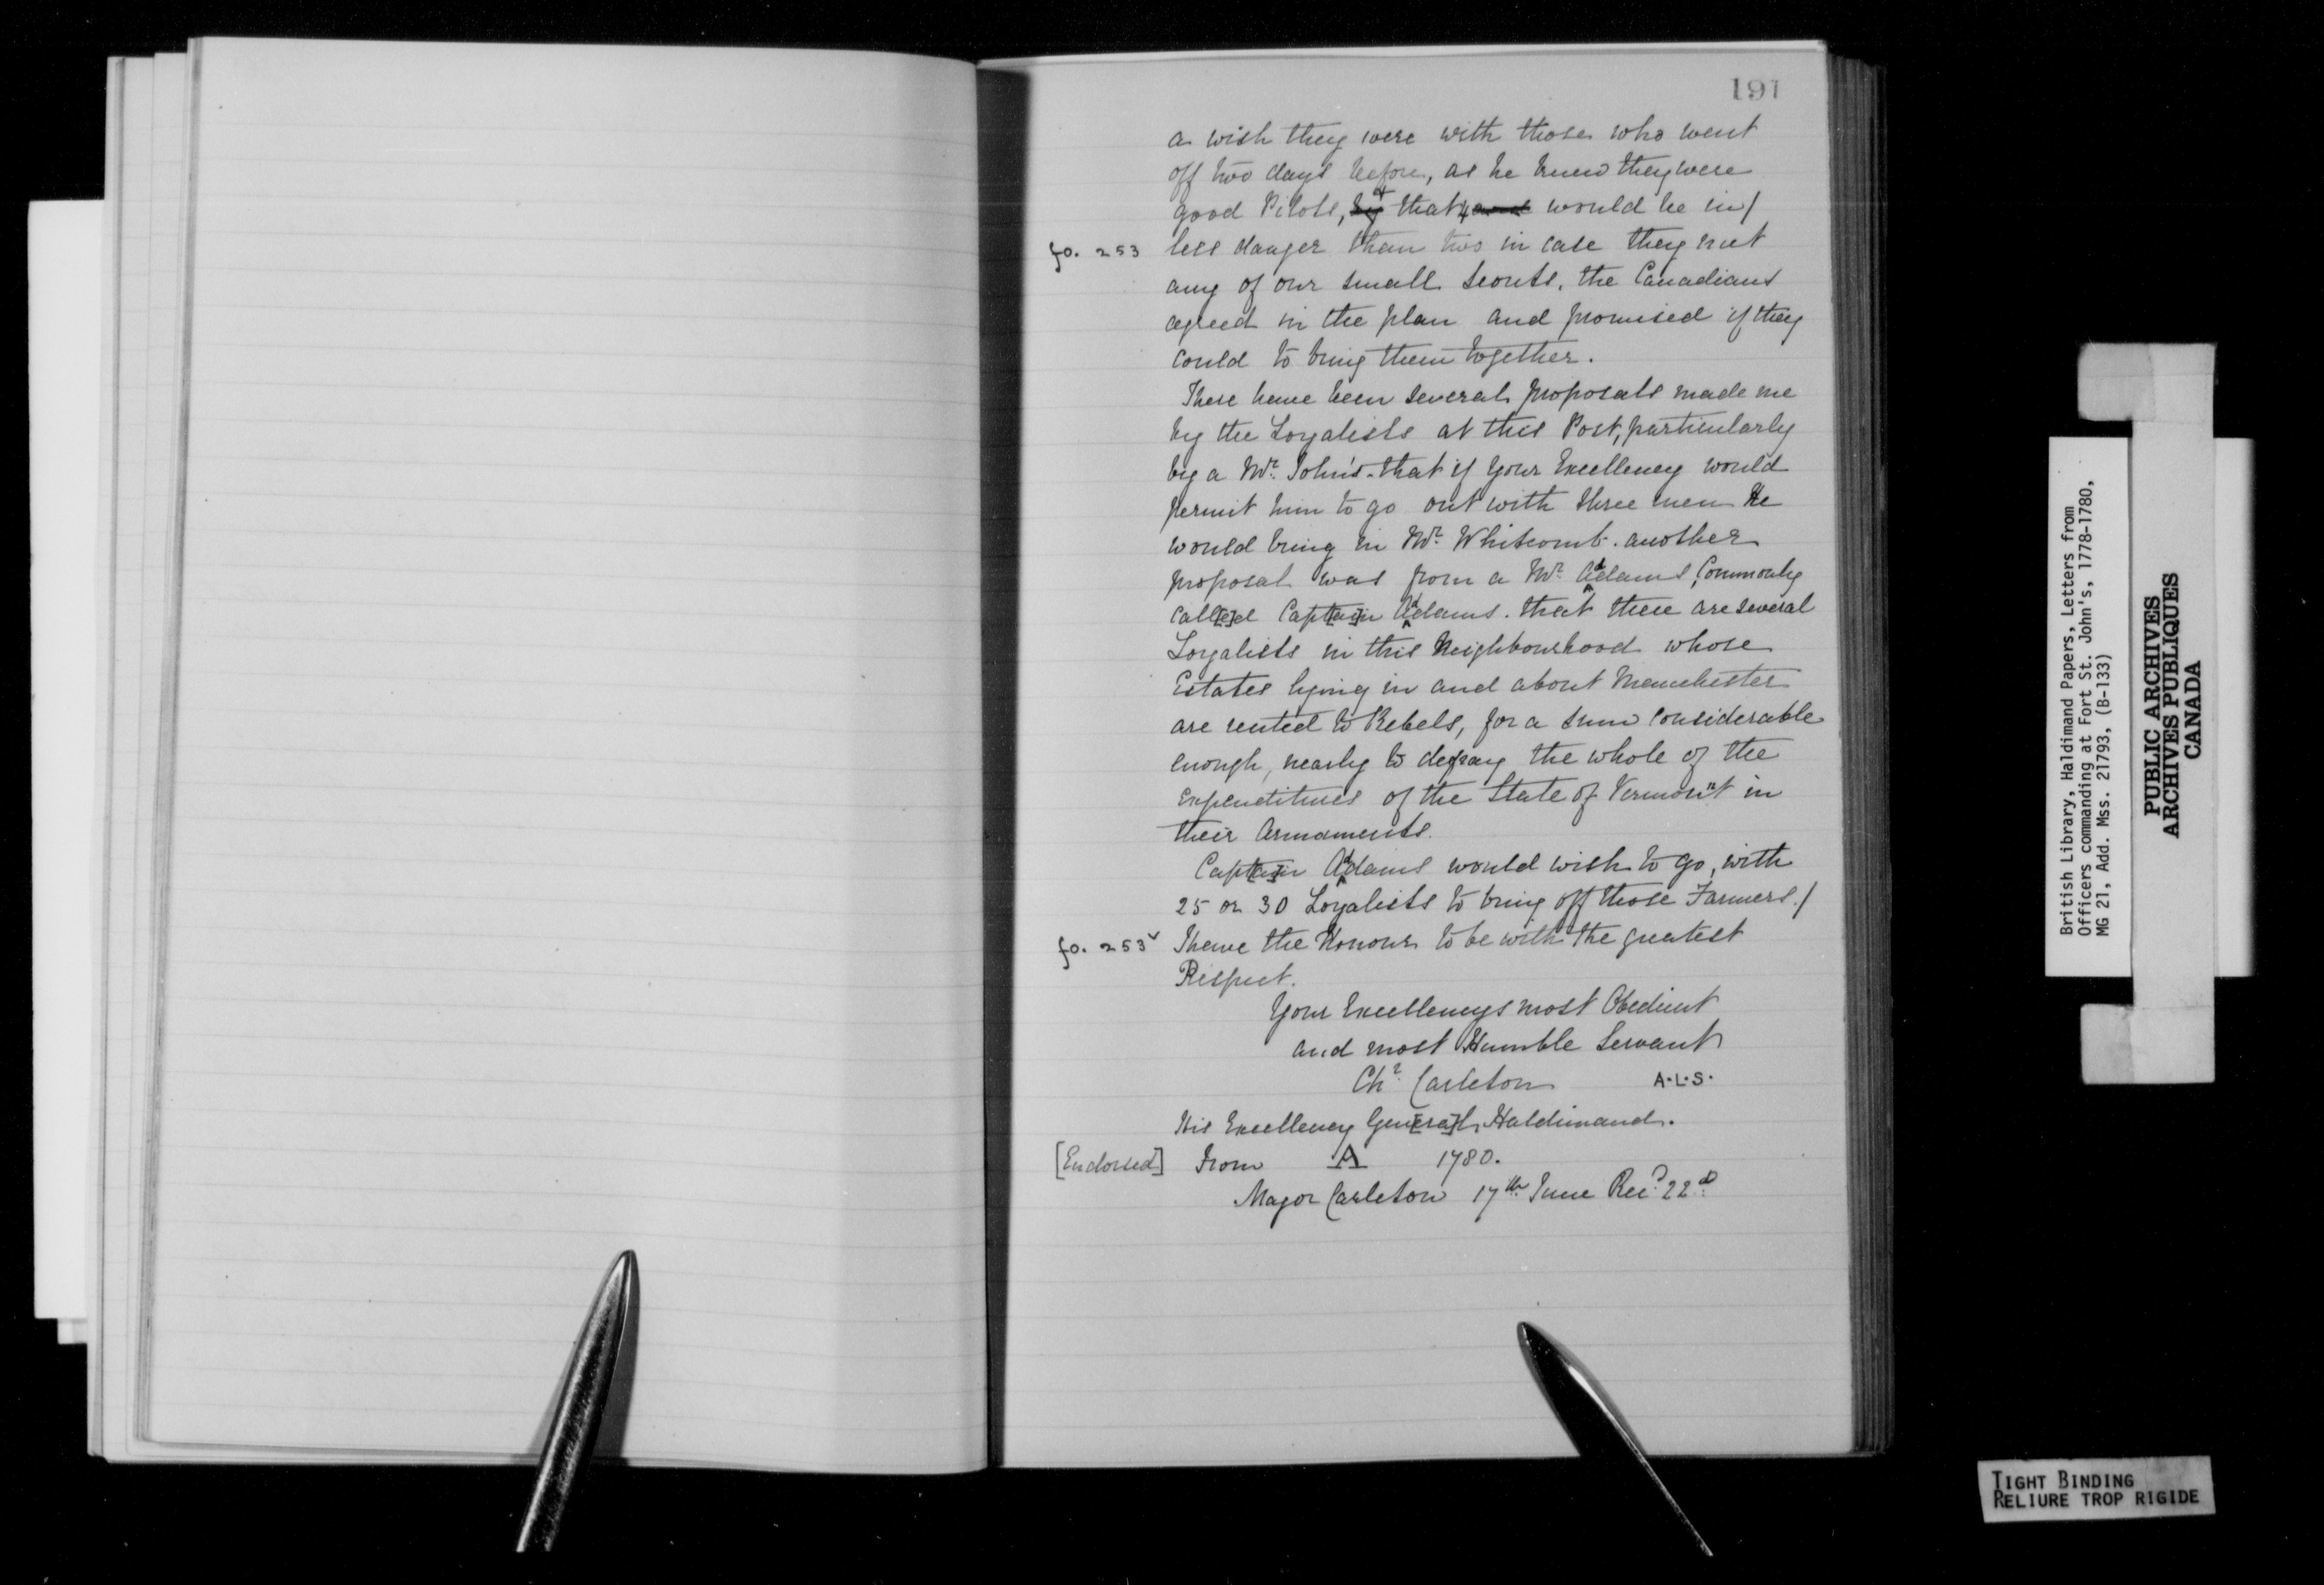 191
a wish they were with those who went
off two days before, as he knew they were
good Pilots, & that 4 would be in/
fo. 253 less danger than two in case they met
any of our small Scouts. the Canadians
agreed in the plan and promised if they
could to bring them together.
There have been several proposals made me
by the Loyalists at this Post, particularly
by a Mr. Johns. that if Your Excellency would
permit him to go out with three men He
would bring in Mr. Whitcomb. another
proposal was from a Mr. Addams, Commonly
Call[e]d Capt[ai]n Addams. that there are several
Loyalists in this Neighbourhood whose
Estates lying in and about Manchester
are rented to Rebels, for a sum Considerable
enough, nearly to defray the whole of the
Expenditures of the State of Vermonnt in
their Armaments.
Capt[ai]n Addams would wish to go, with
25 or 30 Loyalists to bring off those Farmers./
fo. 253v I have the Honour to be with the greatest
Respect.
Your Excellencys most Obedient
and most Humble Servant
Chr. Carleton A.L.S.
His Excellency Gen[era]l Haldimand.
[Endorsed] From A 1780.
Major Carleton 17th. June Recd. 22d.
British Library, Haldimand Papers, Letters from
Officers commanding at Fort St. John's, 1778-1780,
MG 21, Add. Mss. 21793, (B-133)
PUBLIC ARCHIVES
ARCHIVES PUBLIQUES
CANADA
TIGHT BINDING
RELIURE TROP RIGIDE